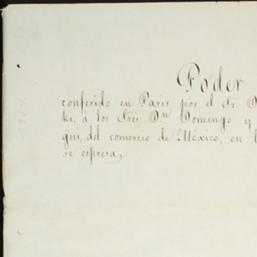 Poder
conferido en Paris por el Sr. D
ki, á los Sres. Dn. Domingo y
gui, del comercio de México, en l
se espresa,